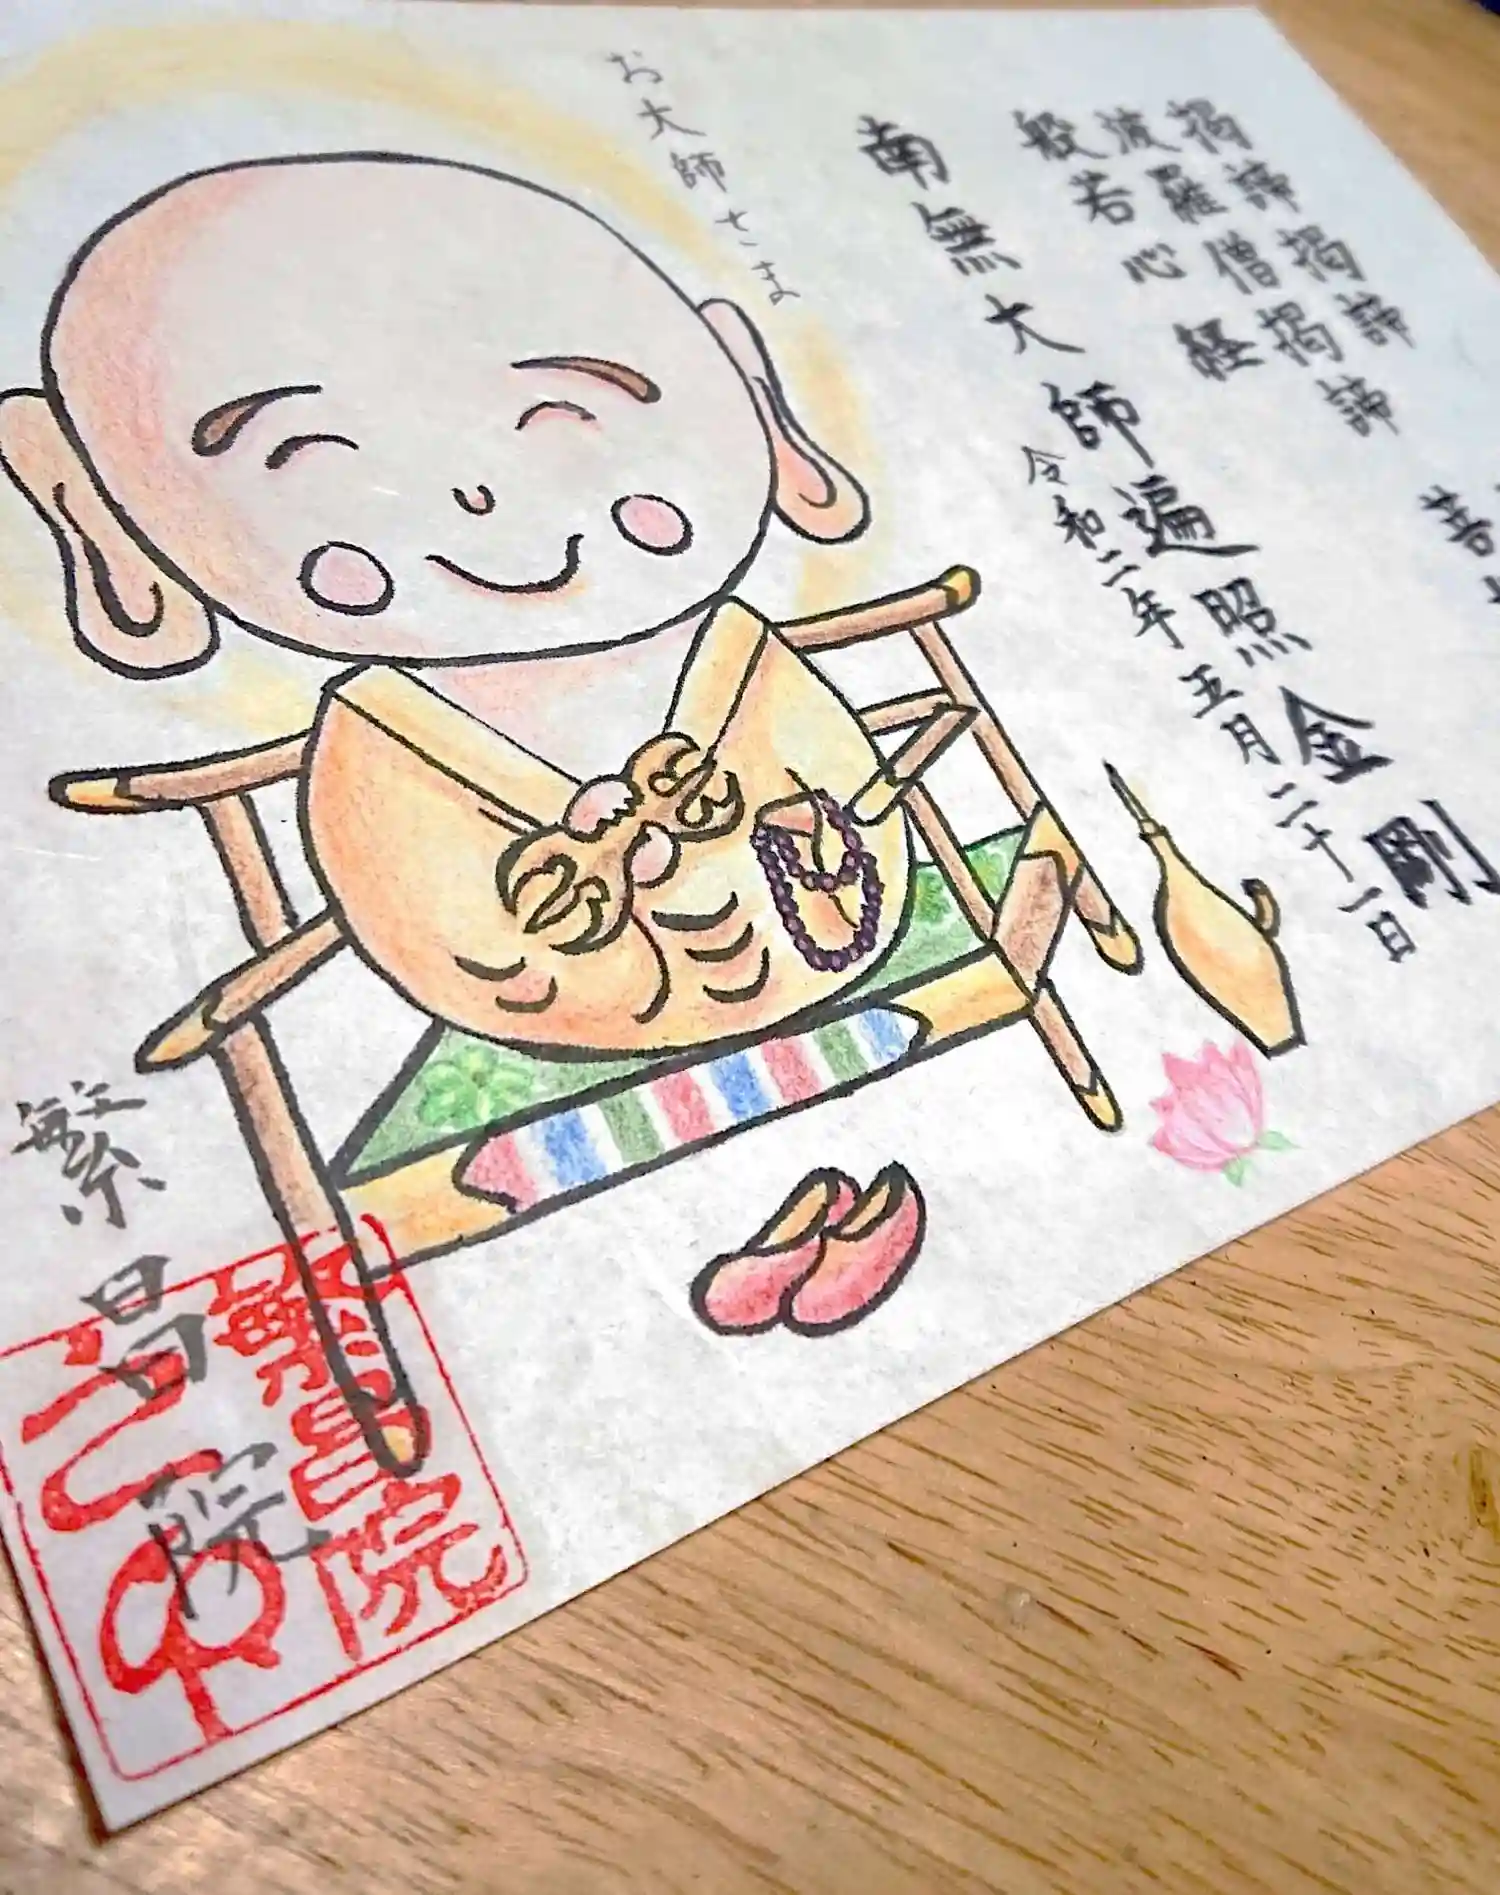 揭諦揭諦
波羅僧揭諦
般若心経
南無大師遍照金剛
令和二年五月二十一日
お大師さま
繁昌院
繁昌院
之印